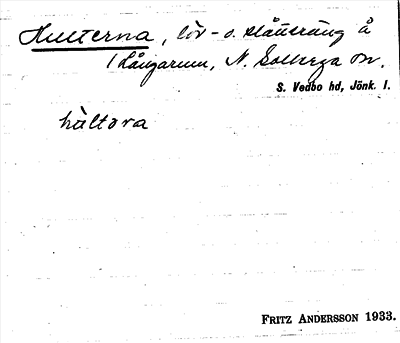 Hulterna, löv- o. slåttäng å
Långarum, N. Solberga sn.
S. Vedbo hd, Jönk. l.
hùltora
FRITZ ANDERSSON 1933.